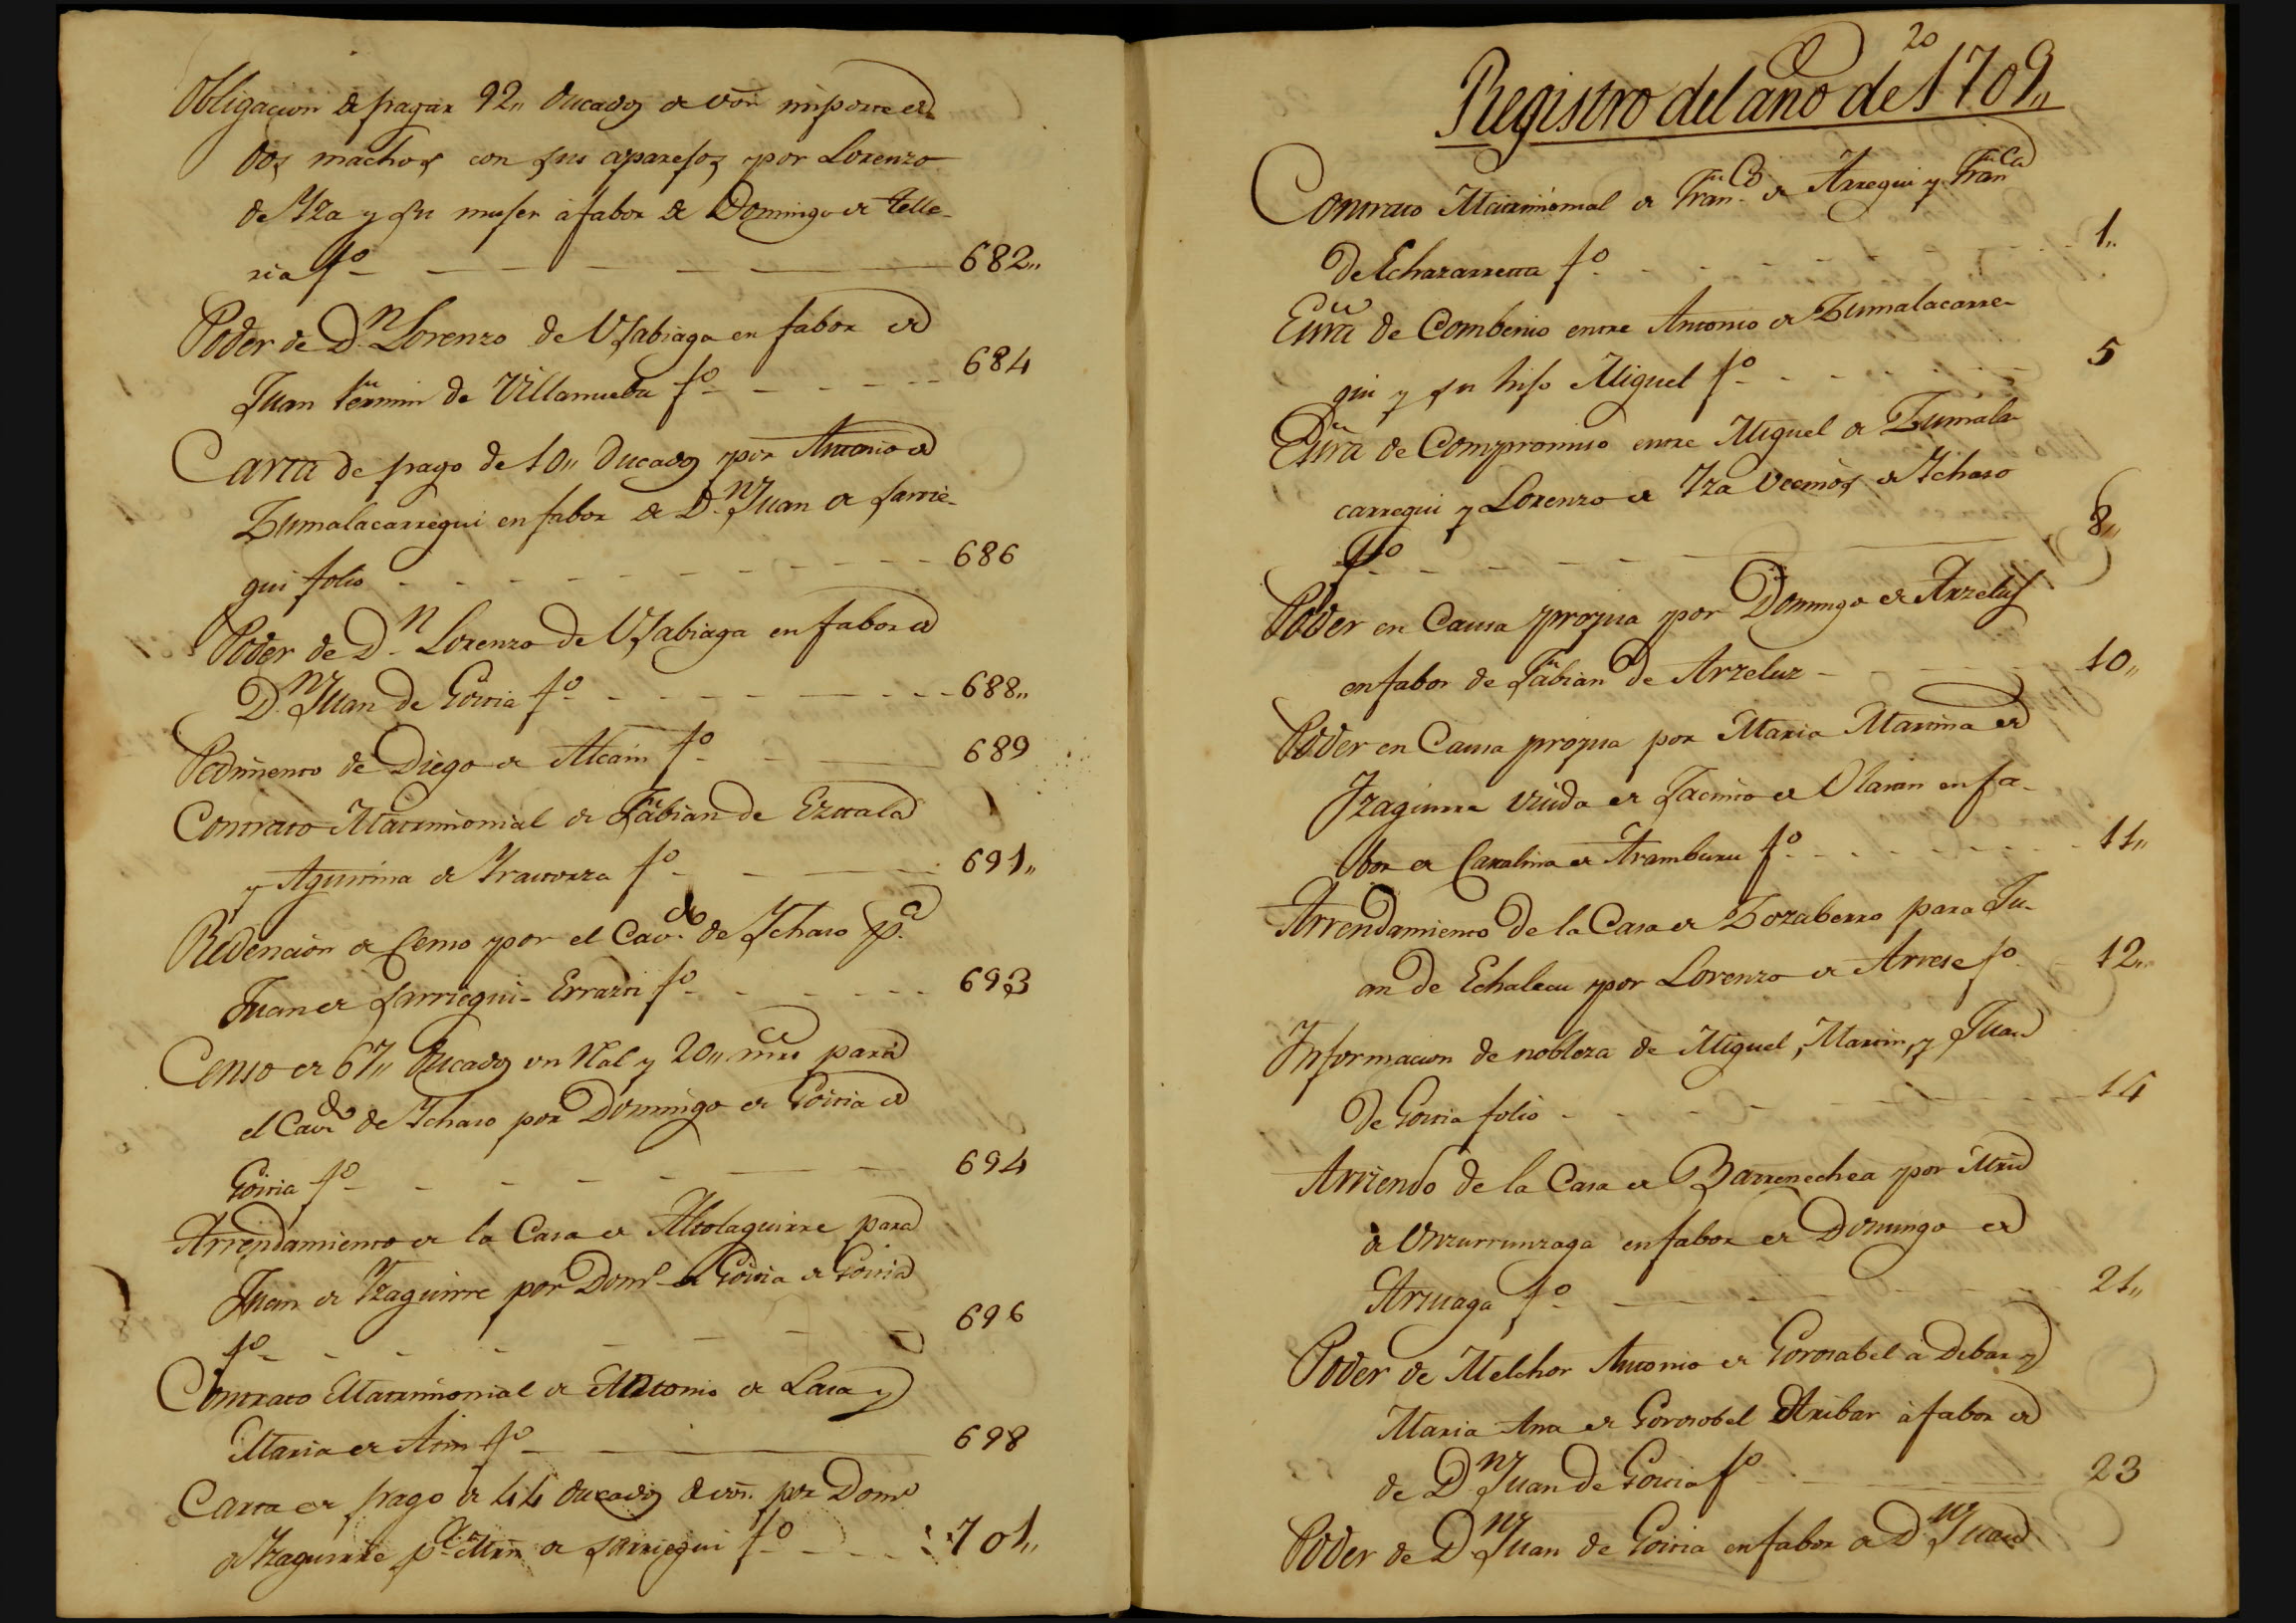 Obligacion de pagar 92,, ducados de von importe de
dos machos con sus aparejos por Lorenzo
de Yza y su muger à fabor de Domingo de telle-
ria fo 682,,
Poder de Dn Lorenzo de Usabiaga en fabor de
Juan fermin de Villanueba fo 684
Carta de pago de 10,, Ducados por Antonio de
Zumalacarregui en fabor de Dn Juan de Larrie-
gui folio 686
Poder de Dn Lorenzo de Usabiaga en fabor de
Dn Juan de Goiria fo 688,,
Pedimento de Diego de Alcain fo 689
Contrato Matrimonial de Fabian de
y Agustina de fo 691,,
Redencion de Censo por el Cavdo de Ychaso pa
Juan de Larriegui - Errazti fo 693
Censo de 67,, Ducados un Ral y 20,, mrs para
el Cavdo de Ychaso por Domingo de Goiria de
Goiria fo 694
Arrendamiento de la Casa de Altolaguirre para
Juan de Yzaguirre por Domo de Goiria de Goiria
fo 696
Contrato Matrimonial de Antonio de Lasa y
Maria de fo 698
Carta de pago de 44 ducados de von por Domo
de Yzaguirre pa Mrn de Larriegui fo 701,,
20
Registro del año de 1709,,
Contrato Matrimonial de Franco de Arregui y Franca
de Echazarreta fo 1,,
Esra de Combenio entre Antonio de Zumalacarre-
gui y su hijo Miguel fo 5
Esra de Compromiso entre Miguel de Zumala-
carregui y Lorenzo de Yza Vecinos de Ychaso
Fo 8,,
Poder en Causa propia por Domingo de Arzelus
en fabor de Fabian de Arzeluz 10,,
Poder en Causa propia por Maria Martina de
Yzaguirre viuda de Jacinto de Olaran en fa-
bor de Catalina de Aramburu fo 11,,
Arrendamiento de la Casa de Zozaberro para Ju-
an de Echalecu por Lorenzo de Arrese fo 12,,
Informacion de nobleza de Miguel, Martin, y Juan
de Goiria folio 14
Arriendo de la Casa de Barrenechea por Mrn
de Unzurrunzaga en fabor de Domingo de
Arzuaga fo 21,,
Poder de Melchor Antonio de Gorosabel à Debar y
Maria Ana de Gorosobel Aribar à fabor de
de Dn Juan de Goiria fo 23
Poder de Dn Juan de Goiria en fabor de Dn Juan